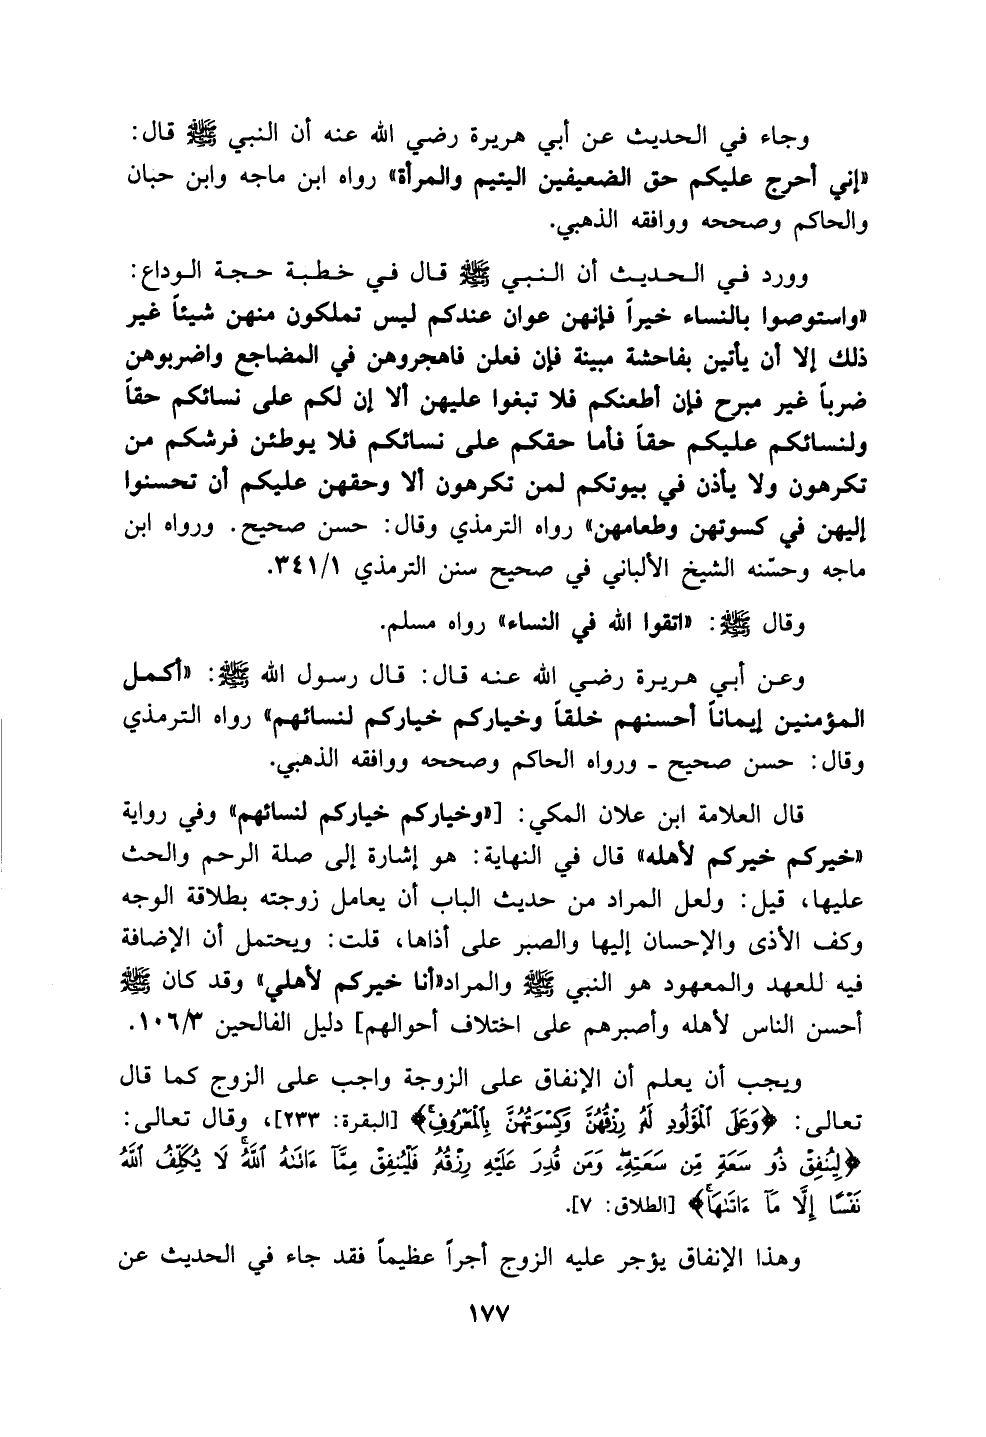 وجاء في الحديث عن أبي هريرة رضي الله عنه أن النبي ﷺ قال:
«إني أحرج عليكم حق الضعيفين اليتيم والمرأة» رواه ابن ماجه وابن حبان
والحاكم وصححه ووافقه الذهبي.
وورد في الحديث أن النبي ﷺ قال في خطبة حجة الوداع:
«واستوصوا بالنساء خيراً فإنهن عوان عندكم ليس تملكون منهن شيئاً غير
ذلك إلا أن يأتين بفاحشة مبينة فإن فعلن فاهجروهن في المضاجع واضربوهن
ضرباً غير مبرح فإن أطعنكم فلا تبغوا عليهن ألا إن لكم على نسائكم حقاً
ولنسائكم عليكم حقاً فأما حقكم على نسائكم فلا يوطئن فرشكم من
تكرهون ولا يأذن في بيوتكم لمن تكرهون ألا وحقهن عليكم أن تحسنوا
إليهن في كسوتهن وطعامهن» رواه الترمذي وقال: حسن صحيح. ورواه ابن
ماجه وحسّنه الشيخ الألباني في صحيح سنن الترمذي ٣٤١/١.
وقال ﷺ: «اتقوا الله في النساء» رواه مسلم.
وعن أبي هريرة رضي الله عنه قال: قال رسول الله ﷺ: «أكمل
المؤمنين إيماناً أحسنهم خلقاً وخياركم خياركم لنسائهم» رواه الترمذي
وقال: حسن صحيح ـ ورواه الحاكم وصححه ووافقه الذهبي.
قال العلامة ابن علان المكي: [«وخياركم خياركم لنسائهم» وفي رواية
«خيركم خيركم لأهله» قال في النهاية: هو إشارة إلى صلة الرحم والحث
عليها، قيل: ولعل المراد من حديث الباب أن يعامل زوجته بطلاقة الوجه
وكف الأذى والإحسان إليها والصبر على أذاها، قلت: ويحتمل أن الإضافة
فيه للعهد والمعهود هو النبي ﷺ والمراد«أنا خيركم لأهلي» وقد كان ﷺ
أحسن الناس لأهله وأصبرهم على اختلاف أحوالهم] دليل الفالحين ١٠٦/٣.
ويجب أن يعلم أن الإنفاق على الزوجة واجب على الزوج كما قال
تعالى: ﴿وَعَلَى ٱلْمَوْلُودِ لَهُۥ رِزْقُهُنَّ وَكِسْوَتُهُنَّ بِٱلْمَعْرُوفِۚ﴾ [البقرة: ٢٣٣]، وقال تعالى:
﴿لِيُنفِقْ ذُو سَعَةٍ مِّن سَعَتِهِۦۖ وَمَن قُدِرَ عَلَيْهِ رِزْقُهُۥ فَلْيُنفِقْ مِمَّآ ءَاتَىٰهُ ٱللَّهُۚ لَا يُكَلِّفُ ٱللَّهُ
نَفْسًا إِلَّا مَآ ءَاتَىٰهَاۚ﴾ [الطلاق: ٧].
وهذا الإنفاق يؤجر عليه الزوج أجراً عظيماً فقد جاء في الحديث عن
١٧٧